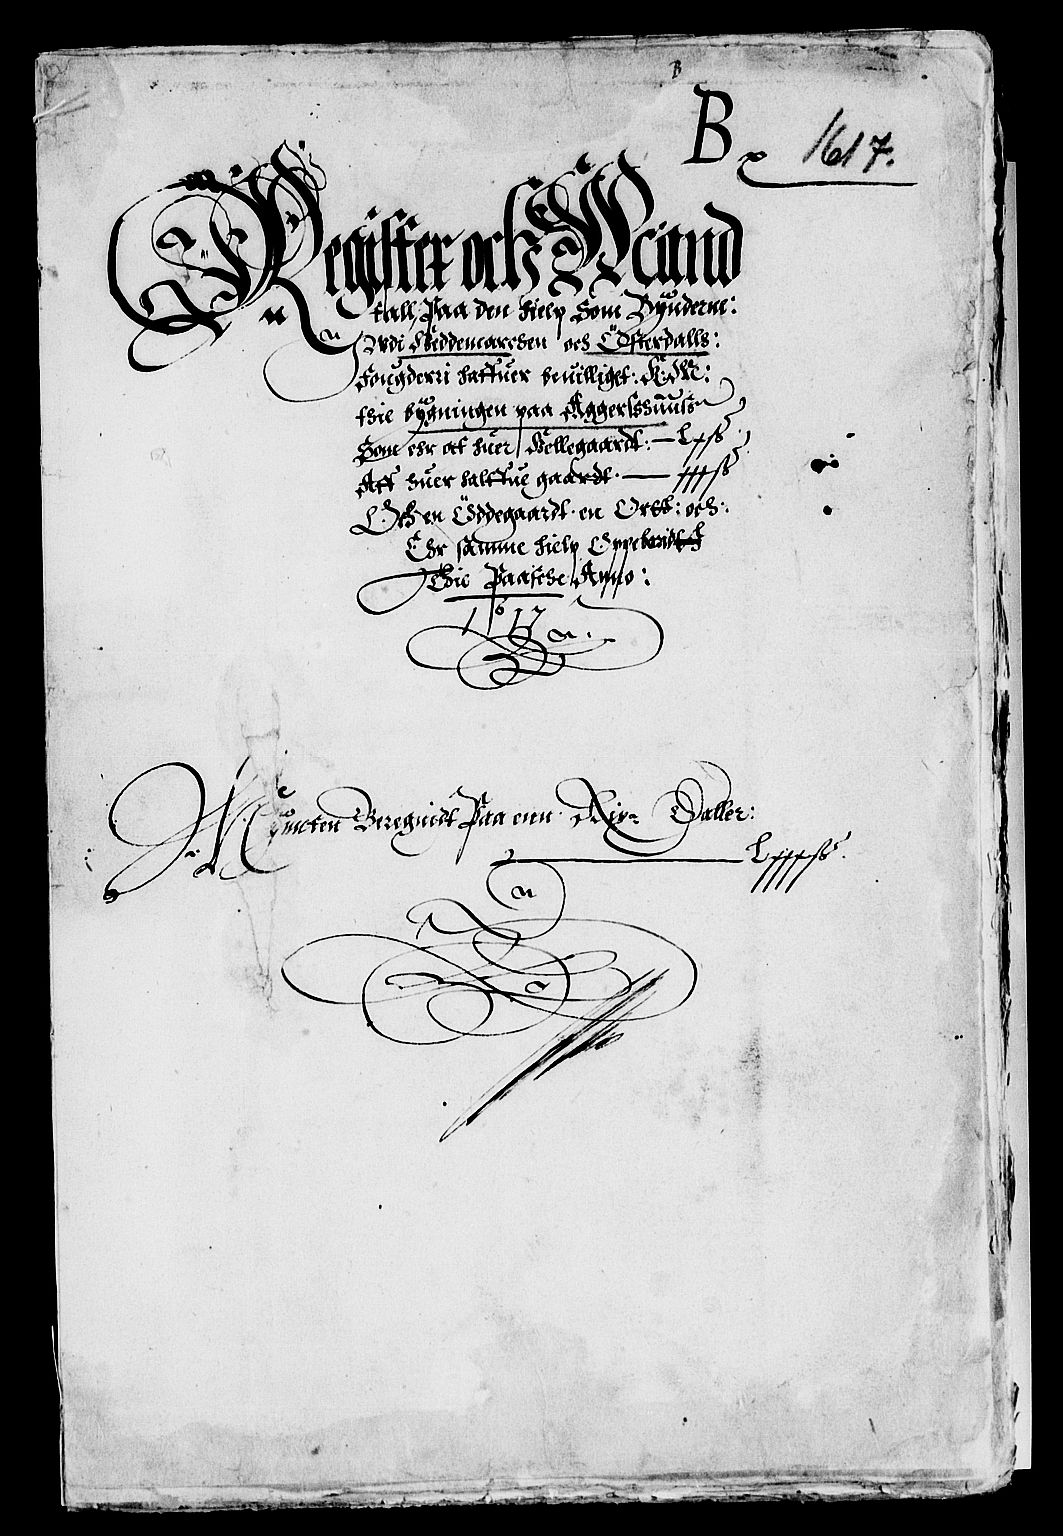 B
B 1617.
Register och Mand
tall, Paa den hielp Som Bynderne:
Udi Heddemarchen och Østerdalls:
Fougderri haffuer beuilliget: K: M:
thie bygningen paa Aggershuus
Som ehr af huer hellegaardt: — Lxß
Aff huer halffue gaardt — xxxß
Och en Øddegaardt en Ort: och:
Ehr samme hielp Oppebaridt
Thie Paasche Anno:
1617
Mynten Beregnidt Paa enn Rix Daller:
Lxxxxß.